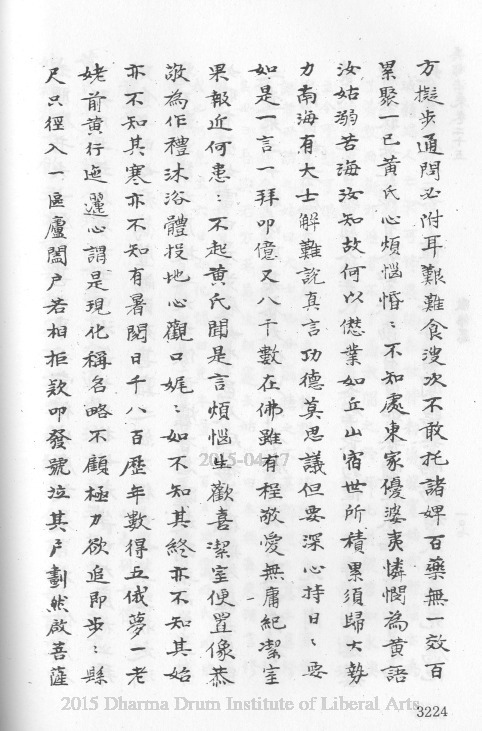 方擬步通問必附耳艱難食溲次不敢托諸婢百藥無一效百
累聚一已黃氏心煩惱惛〻不知處東家優婆夷憐憫為黃語
汝姑溺苦海汝知故何以愆業如丘山宿世所積累須歸大勢
力南海有大士解難説真言功德莫思議但要深心持日〻要
如是一言一拜叩億又八千數在佛雖有程敬愛無庸紀潔室
果報近何患〻不起黃氏聞是言煩惱生歡喜潔室便置像恭
敬為作禮沐浴體投地心觀口娓〻如不知其終亦不知其始
亦不知其寒亦不知有暑閱日千八百歷年數得五俄夢一老
姥前黃行迤邐心謂是現化稱名略不顧極力欲追即步〻縣
尺只徑入一區廬闔户若相拒欵叩發號泣其户劃然啟菩薩
2015-04-17
2015 Dharma Drum Institute of Liberal Arts
3224